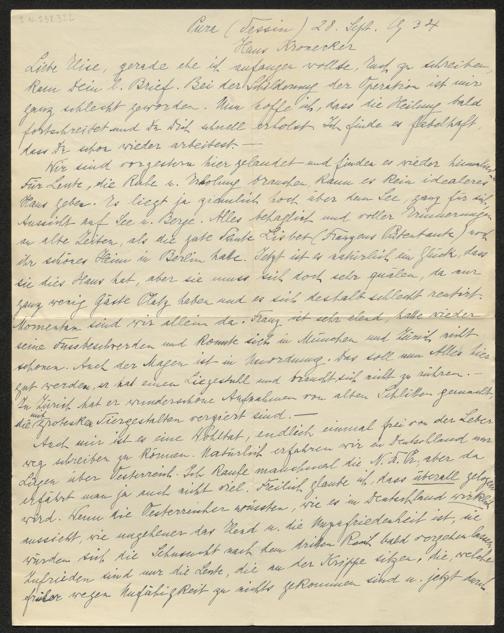 Pura (Tessin) 28. Sept. 34
Haus Kronecker
Liebe Elise, gerade ehe ich anfangen wollte, Euch zu schreiben,
kam Dein l. Brief. Bei der Schilderung der Operation ist mir
ganz schlecht geworden. Nun hoffe ich, dass die Heilung bald
fortschreitet und Du Dich schnell erholst. Ich finde es fabelhaft
dass Du schon wieder arbeitest. —
Wir sind vorgestern hier gelandet und finden es wieder himmlisch.
Für Leute, die Ruhe u. Erholung brauchen, kann es kein idealeres
Haus geben. Es liegt ja ziemlich hoch über dem See, ganz für sich,
Aussicht auf See u. Berge. Alles behaglich und voller Erinnerungen
an alte Zeiten, als die gute Tante Lisbet (Franzens Patentante) noch
ihr schönes Heim in Berlin hatte. Jetzt ist es natürlich ein Glück, dass
sie dies Haus hat, aber sie muss sich doch sehr quälen, da nur
ganz wenig Gäste Platz haben und es sich deshalb schlecht rentirt.
Momentan sind wir allein da. Franz ist sehr elend, hatte wieder
seine Fussbeschwerden und konnte sich in München und Zürich nicht
schonen. Auch der Magen ist in Unordnung. Das soll nun Alles hier
gut werden, er hat einen Liegestuhl und braucht sich nicht zu rühren. —
In Zürich hat er wunderschöne Aufnahmen von alten Schlitten gemacht,
die mit grotesken Tiergestalten verziert sind. —
Auch mir ist es eine Wohltat, endlich einmal frei von der Leber
weg schreiben zu können. Natürlich erfahren wir in Deutschland nur
Lügen über Oesterreich. Ich kaufe manchmal die N. Z. Z., aber da
erfährt man ja auch nicht viel. Freilich glaube ich, dass überall gelogen
wird. Wenn die Oesterreicher wüssten, wie es in Deutschland wirklich
aussieht, wie ungeheuer das Elend u. die Unzufriedenheit ist, sie
würden sich die Sehnsucht nach dem dritten Reich bald vergehen lassen.
Zufrieden sind nur die Leute, die an der Krippe sitzen, die, welche
früher wegen Unfähigkeit zu nichts gekommen sind u. jetzt durch